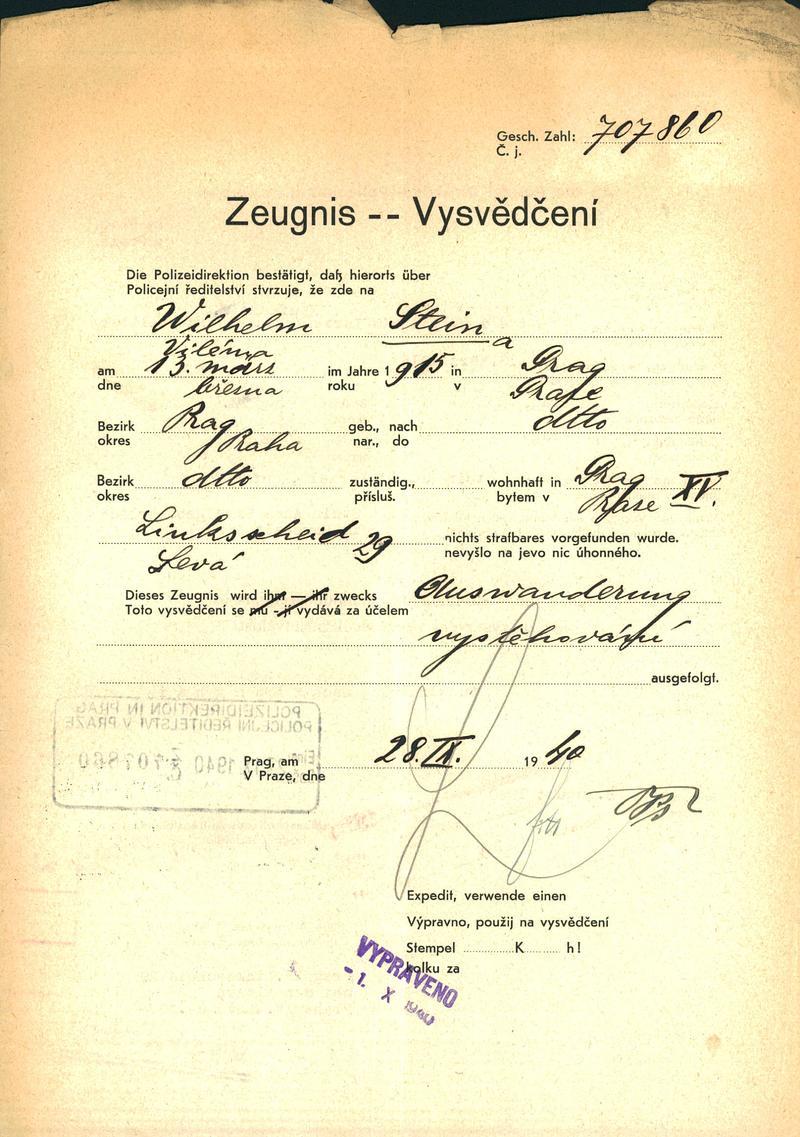 Gesch. Zahl: 707860
Č. j.
Zeugnis -- Vysvědčení
Die Polizeidirektion bestätigt, daß hierorts über
Policejní ředitelství stvrzuje, že zde na
Wilhelm Stein a
Viléma
am 13. märs im Jahre 1915 in Prag
dne března roku v Praze
Bezirk Prag geb., nach dtto
okres Praha nar., do
Bezirk dtto zuständig., wohnhaft in Prag XV.
okres přísluš. bytem v Praze
Linksscheid 29 nichts strafbares vorgefunden wurde.
Levá nevyšlo na jevo nic úhonného.
Dieses Zeugnis wird ihm — ihr zwecks Auswanderung
Toto vysvědčení se mu - jí vydává za účelem
vystěhování
ausgefolgt.
POLIZEIDIREKTION IN PRAG
POLICEJNÍ ŘEDITELSTVÍ V PRAZE
1940 707860
Prag, am 28. IX. 1940
V Praze, dne
Expedit, verwende einen
Výpravno, použij na vysvědčení
Stempel K h!
kolku za
VYPRAVENO
-1. X 1940